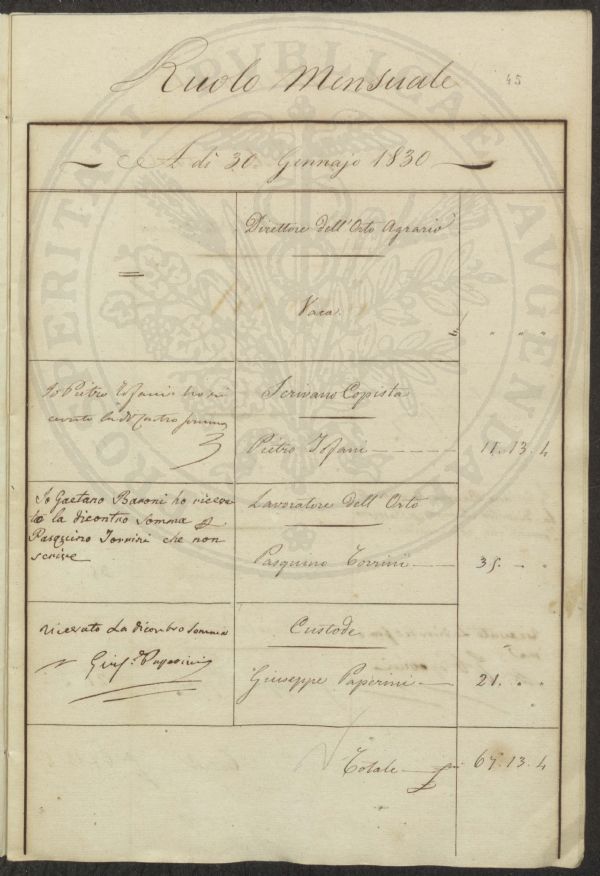 Ruolo Mensuale
45
A dì 30 Gennajo 1830
Direttore dell'Orto Agrario
=
Vaca
" " "
Io Pietro Tofani ho ri
cevuto la di Contro somma
Scrivano Copista
Pietro Tofani 11.13.4
Io Gaetano Baroni ho ricevu
to la dicontro Somma p
Pasquino Torrini che non
scrive
Lavoratore dell'Orto
Pasquino Torrini 35. " "
ricevuto La dicontro Somma
Gius.e Paperini
Custode
Giuseppe Paperini 21. " "
Totale 67.13.4
PROSPERITATI PVBLICAE AVGENDAE